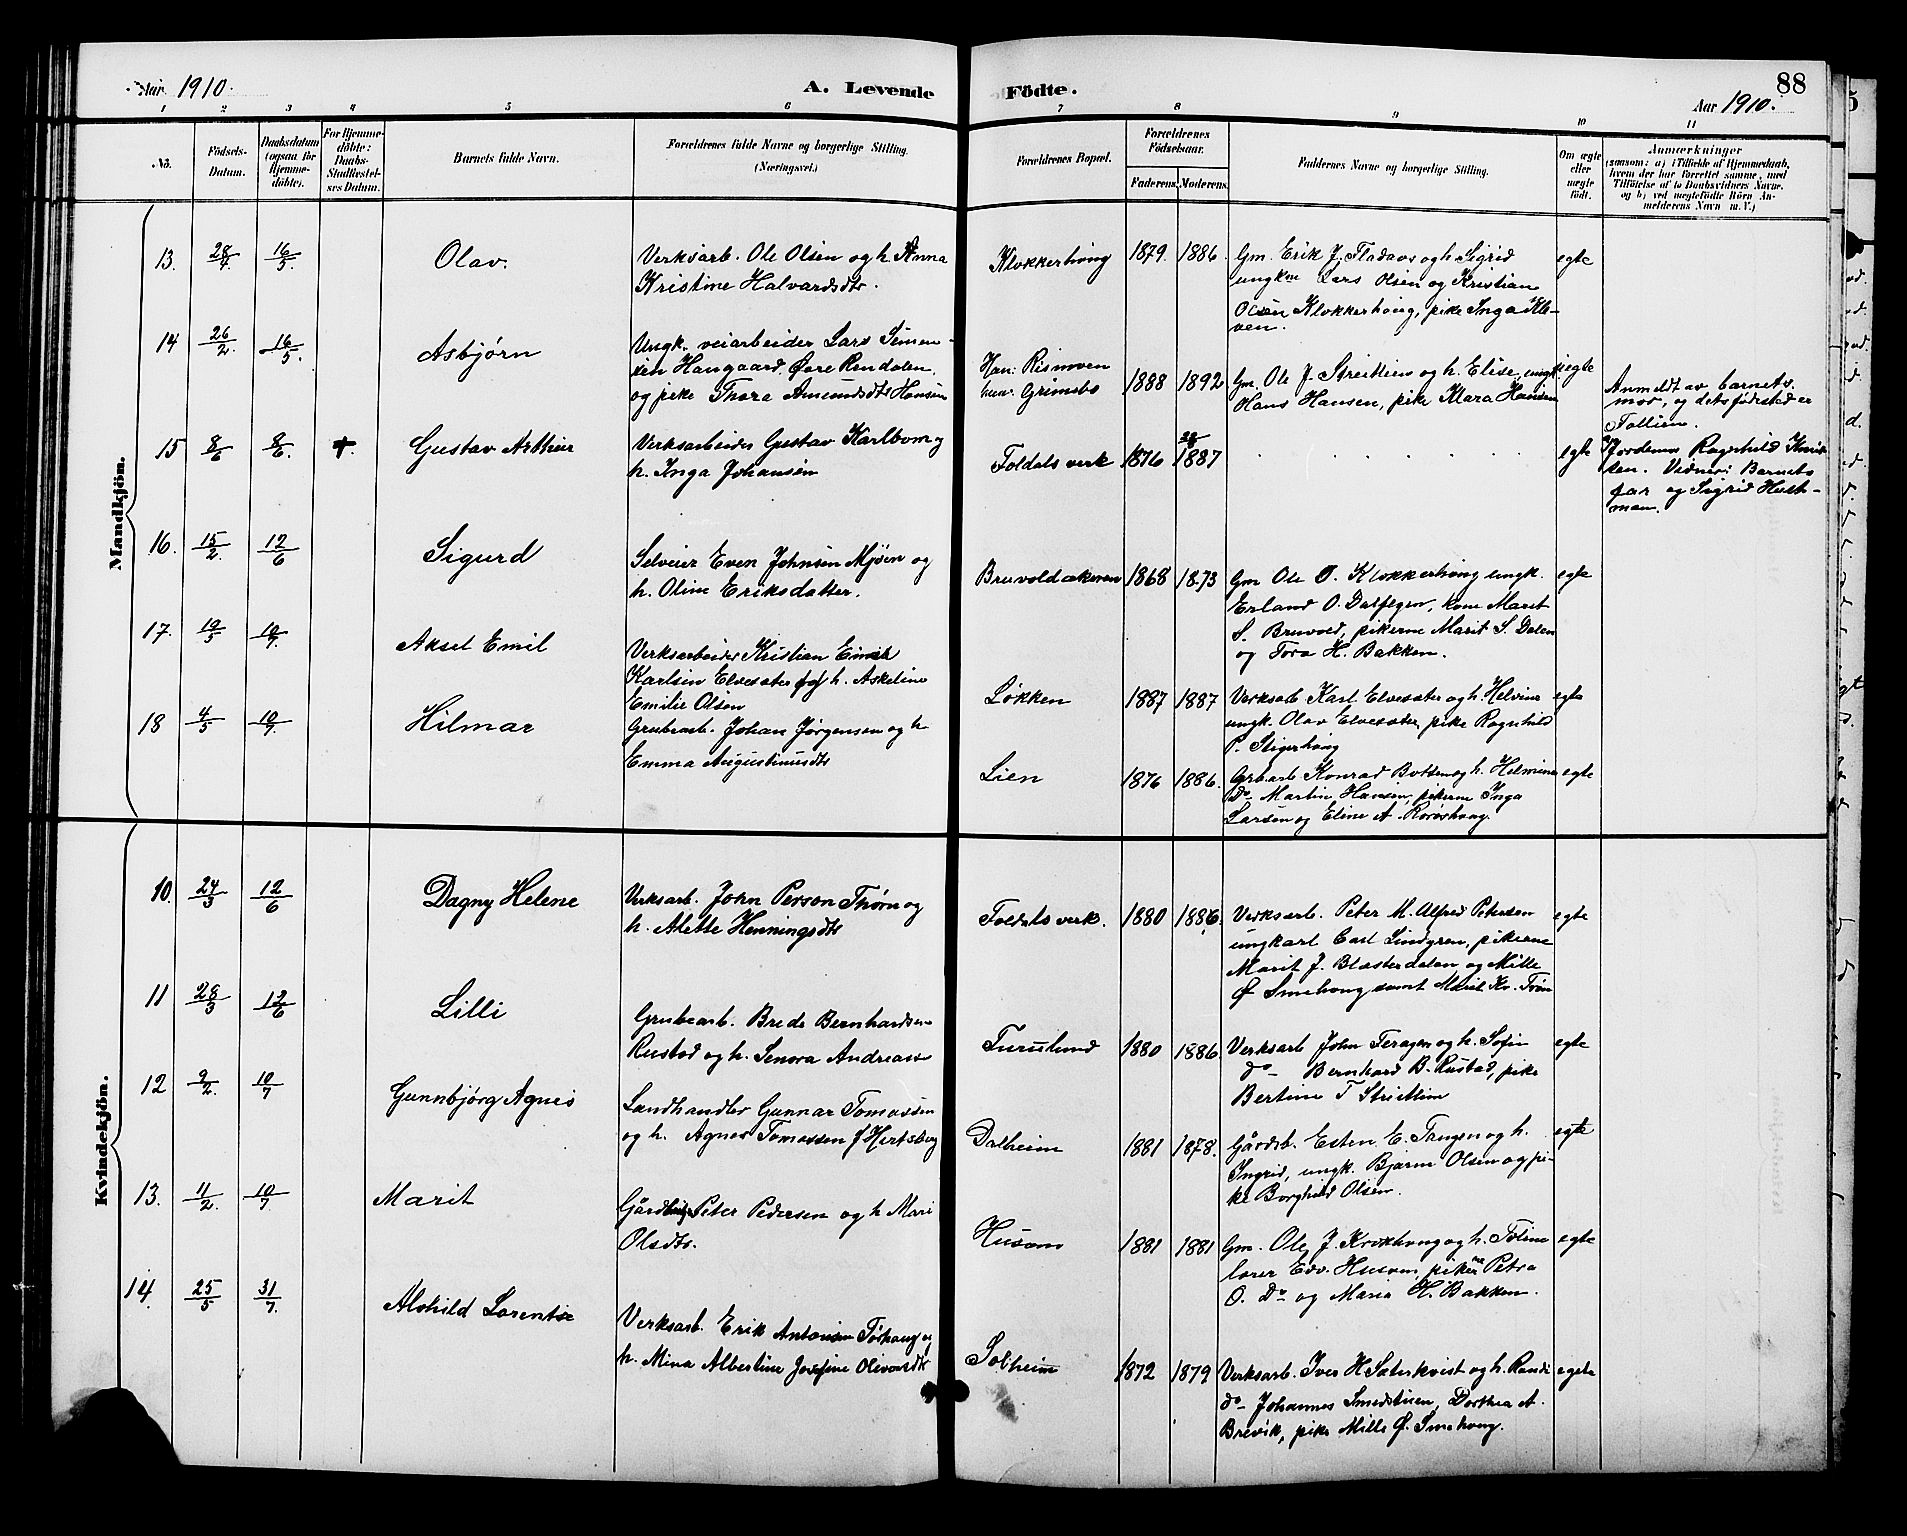 Aar 1910.
A. Levende
Födte.
88
Aar 1910.
1 2 3 4 5 6 7 8 9 10 11
No.
Födsels-
Datum.
Daabsdatum
(ogsaa for
Hjemme-
döbte).
For Hjemme-
döbte:
Daabs-
Stadfæstel-
ses Datum.
Barnets fulde Navn.
Forældrenes fulde Navne og borgerlige Stilling.
(Næringsvei.)
Forældrenes Bopæl.
Forældrenes
Födselsaar.
Faderens. Moderens.
Faddernes Navne og borgerlige Stilling.
Om ægte
eller
uægte
födt.
Anmærkninger
(saasom: a) i Tilfælde af Hjemmedaab,
hvem der har forrettet samme, med
Tilföielse af to Daabsvidners Navne.
og b) ved uægtefödte Börn An-
melderens Navn m. V.)
Mandkjön.
13. 28/4 16/5.
Olav.
Verksarb. Ole Olsen og h. Anna
Kristine Halvardsdtr.
Klokkerhoug
1879. 1886.
Gm. Erik J. og h. Sigrid
ungkm Lars Olsen og Kristian
Olsen Klokkerhoug, pike Inga Kle-
ven.
egte
14 26/2. 16/5.
Asbjørn
Ungk. veiarbeider Lars Simen-
sen Haugaard, Øvre Rendalen,
og pike Thora Amundsdtr Hansen
Han: Rismoen
hun: Grimsbo
1888 1892
Gm. Ole J. Streitlien og h. Elise, ungk.
Hans Hansen, pike Klara Hansen
uegte
Anmeldt av barnets
mor, og dets fødested er
Follien.
15 8/6 8/6. +.
Gustav Arthur
Verksarbeider Gustav Karlbom og
h. Inga Johansen
Foldals verk
1876 1887
egte
Jordemor Ragnhild
Vidner: Barnets
far og Sigrid Hust-
man.
16. 15/2. 12/6
Sigurd
Selveier Even Johnsen Mjøen og
h. Oline Eriksdatter.
Bruvoldakeren
1868 1873
Gm Ole O. Klokkerhoug ungk.
Erland O. Dalsegen, kone Marit
S. Bruvold, pikerne Marit S. Dalen
og Tora H. Bakken.
egte
17. 19/5 10/7.
Aksel Emil
Verksarbeider Kristian Emil
Karlsen Elvesæter og h. Askeline
Emilie Olsen
Løkken
1887 1887
Verksarb Karl Elvesæter og h. Helvine
ungk. Olav Elvesæter, pike Ragnhild
P. Stigerhoug
egte
18 4/5 10/7.
Hilmar
Grubearb. Johan Jørgensen og h
Emma Augustinusdtr
Lien
1876 1886.
Grbarb Konrad Botten og h. Helmine
do- Martin Hansen, pikerne Inga
Larsen og Eline A. Rørøshaug.
egte
Kvindekjön.
10. 24/3 12/6
Dagny Helene
Verksarb. John Person Thørn og
h. Alette Henningsdtr
Foldals verk.
1880 1886.
Verksarb. Peter M. Alfred Petersen
ungkarl Carl Lindgren, pikerne
Marit J. Blæsterdalen og Mille
Ø Smehoug samt Marit Kr. Trøn
egte
11 28/3 12/6
Lilli
Grubearb. Brede Bernhardsen
Rustad og h. Senora Andreasn
Furulund
1880 1886.
Verksarb John Feragen og h. Sofie
do- Bernhard B. Rustad, pike
Bertine T Streitlien
egte
12 9/2. 10/7
Gunnbjørg Agnes
Landhandler Gunnar Tomassen
og h. Agnes Tomassen f Hertsberg
Dalheim
1881 1878.
Gårdb. Esten E. Tangen og h.
Ingrid, ungk. Bjarne Olsen og pi-
ke Borghild Olsen.
egte
13. 11/2. 10/7
Marit
Gårdbrug. Peter Pedersen og h Mari
Olsdtr.
Husom
1881 1881
Gm. Ole J. Krokhoug og h. Toline
lærer Edv. Husom, pikerne Petra
O. Do og Maria H. Bakken.
egte
14. 25/5 31/7.
Alvhild Lorentse
Verksarb. Erik Antonsen Tørhaug og
h. Mina Albertine Josefine Olivarsdtr
Solheim
1872 1879
Verksarb. Iver H Sæterkvist og h. Randi
do- Johannes Smedstuen, Dorthea A.
Brevik, pike Mille Ø. Smehoug.
egete